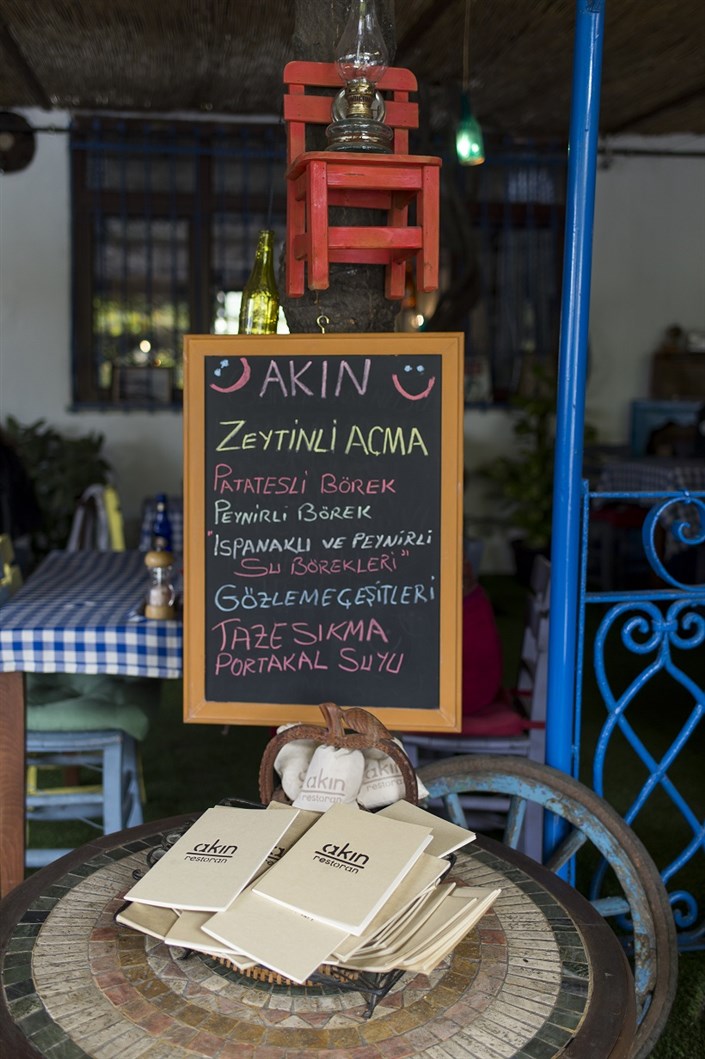 AKIN
ZEYTİNLİ AÇMA
PATATESLİ BÖREK
PEYNİRLİ BÖREK
"ISPANAKLI VE PEYNİRLİ
SU BÖREKLERİ"
GÖZLEME ÇEŞİTLERİ
TAZE SIKMA
PORTAKAL SUYU
akın
restoran
akın
akın
restoran
akın
restoran